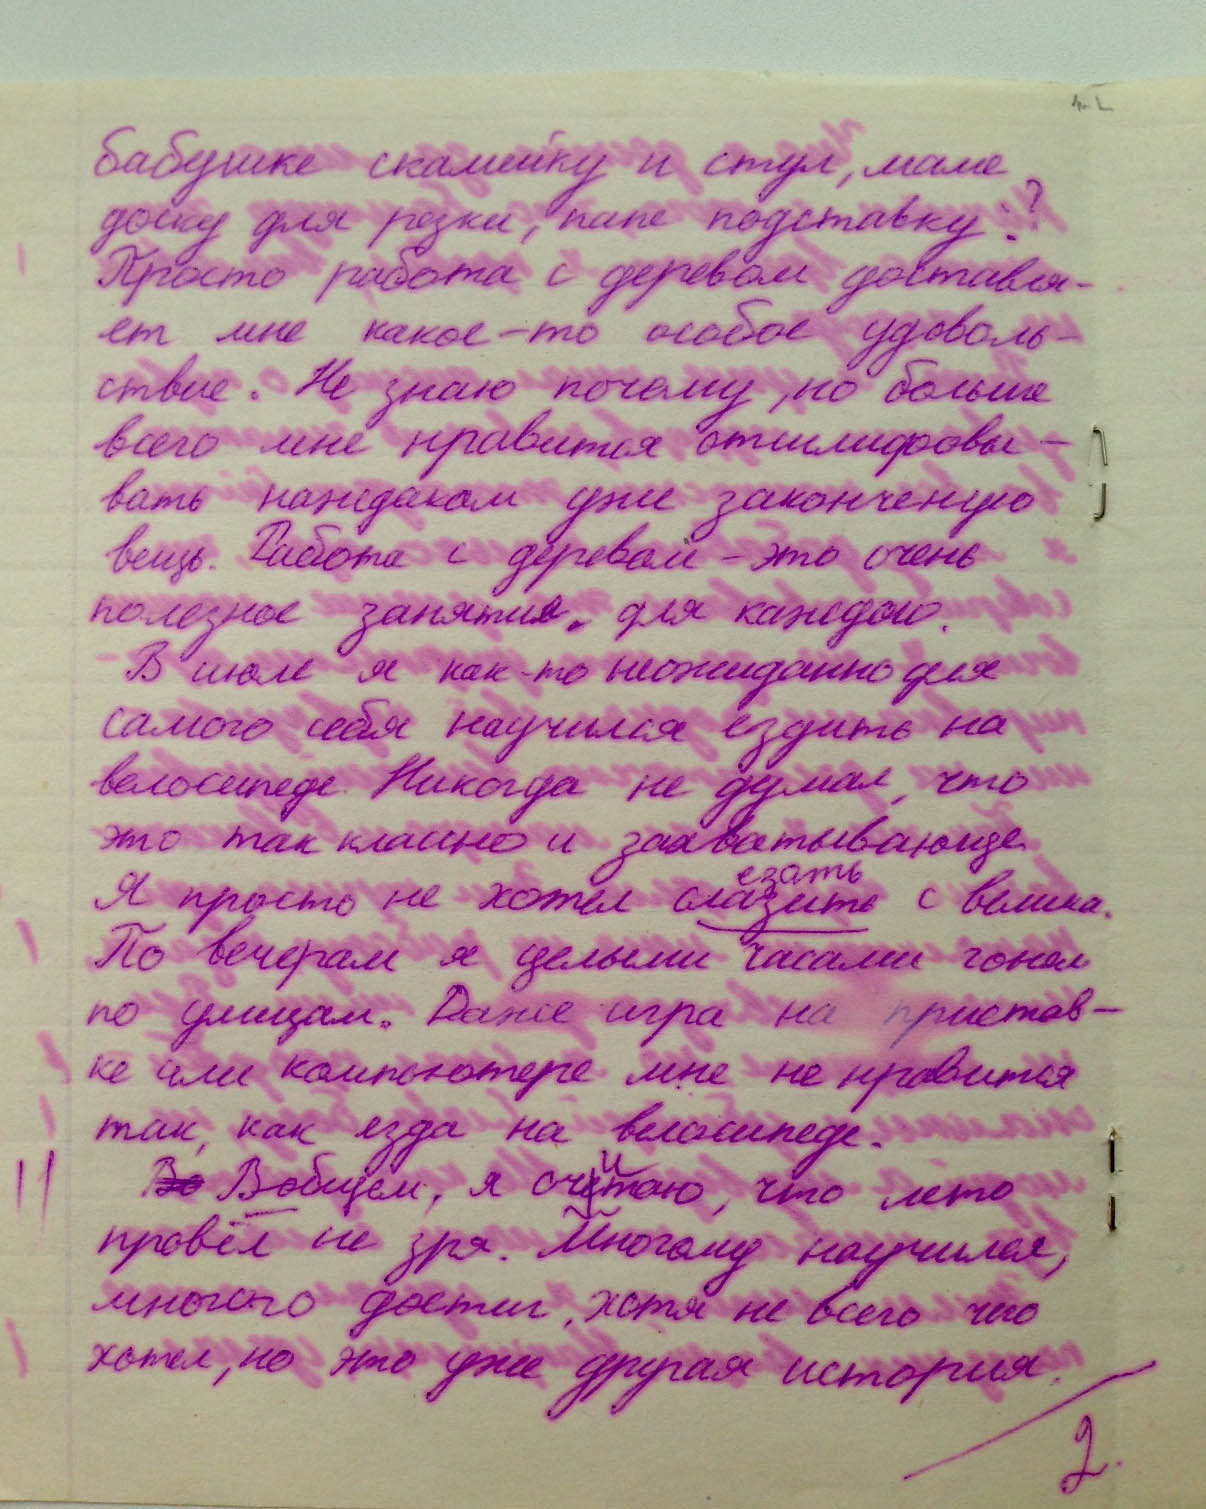 бабушке скамейку и стул, маме
доску для резки, папе подставку.?
Просто работа с деревом доставля-
ет мне какое-то особое удоволь-
ствие. Не знаю почему, но больше
всего мне нравится отшлифовы-
вать наждаком уже законченую
вещь. Работа с деревом - это очень
полезное занятия. для каждого.
В июле я как-то неожиданно для
самого себя научился ездить на
велосипеде. Никогда не думал, что
это так классно и захватывающе.
езать
Я просто не хотел слазить с велика.
По вечерам я целыми часами гонял
по улицам. Даже игра на пристав-
ке или компьютере мне не нравится
так, как езда на велосипеде.
Во Вобщем, я считаю, что лето
провёл не зря. Многому научился,
многого достиг, хотя не всего чего
хотел, но это уже другая история.
2.